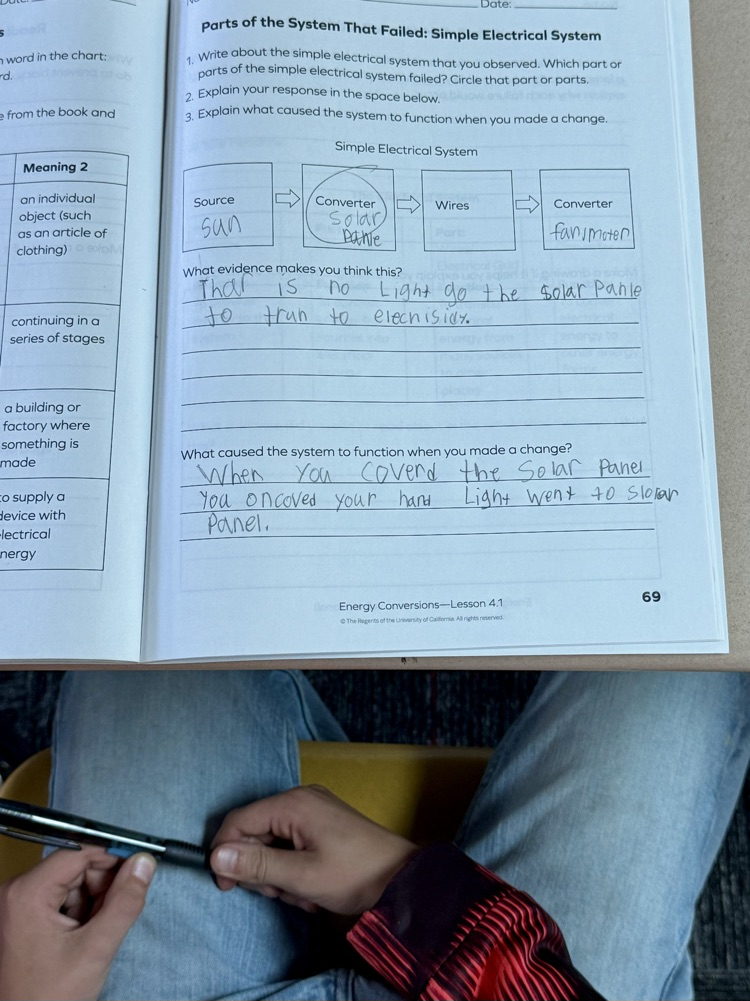 Date:
Parts of the System That Failed: Simple Electrical System
1. Write about the simple electrical system that you observed. Which part or
parts of the simple electrical system failed? Circle that part or parts.
2. Explain your response in the space below.
3. Explain what caused the system to function when you made a change.
word in the chart:
rd.
from the book and
Meaning 2
an individual
object (such
as an article of
clothing)
continuing in a
series of stages
a building or
factory where
something is
made
to supply a
device with
electrical
energy
Simple Electrical System
Source
sun
Converter
Solar
Panle
Wires
Converter
fan/moter
What evidence makes you think this?
Thar is no Light go the solar Panle
to trun to elecnisidy.
What caused the system to function when you made a change?
When You coverd the Solar Panel
You oncoved your hand Light went to Slorar
Panel.
Energy Conversions—Lesson 4.1
© The Regents of the University of California. All rights reserved.
69